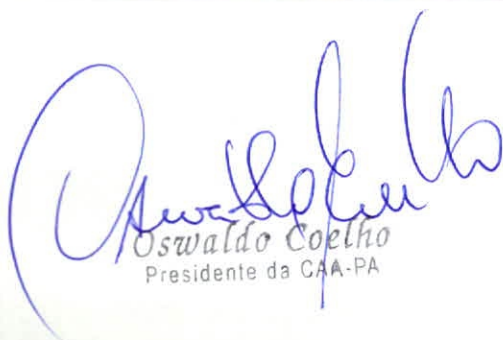 Oswaldo Coelho
Presidente da CAA-PA